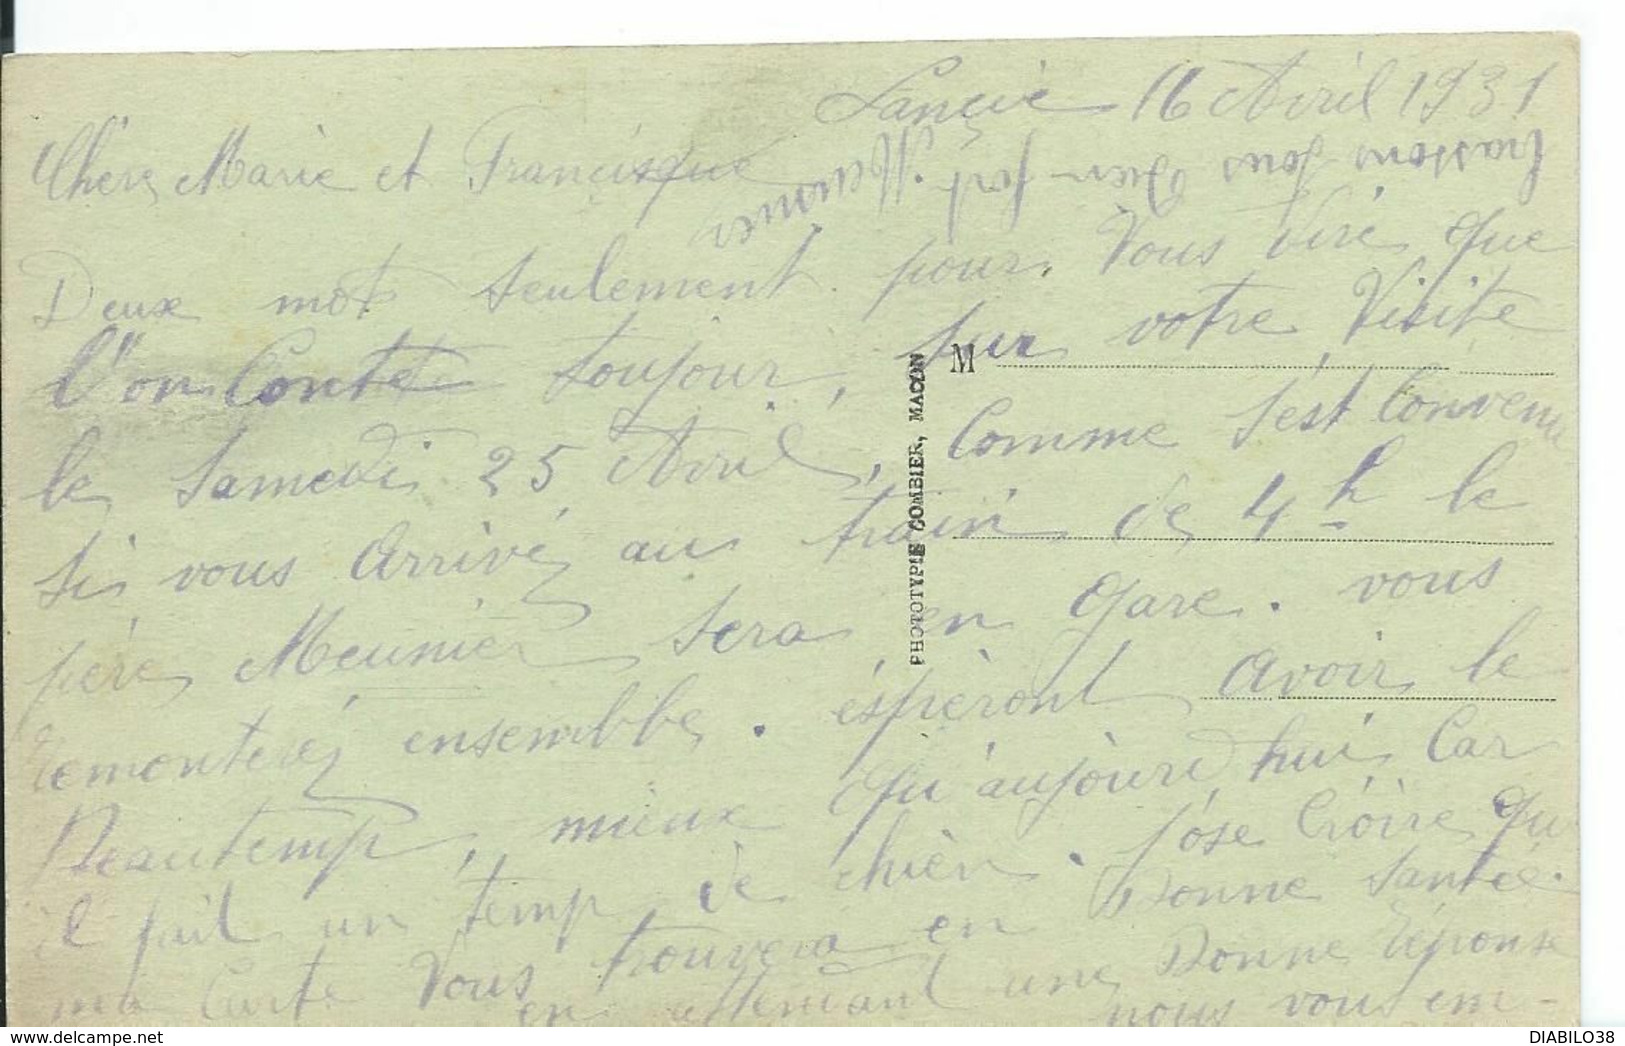 Lancié 16 Avril 1931
Chère Marie et Francisque
Deux mot seulement pour Vous dire que
l'on Conte toujour, sur votre Visite
le Samedi 25 Avril, Comme s'est Convenu
si vous Arrivé au train de 4h le
père Meunier sera en gare. vous
remonterez ensemble. éspèront avoir le
Beautemp, mieux qu'aujourd hui Car
il fait un temp de chien. j'ose Croire que
ma Carte Vous trouvera en Bonne Santée.
en attendant une Bonne Réponse
nous vous em-
brassons tous bien fort. Meunier
M
PHOTOTYPIE COMBIER, MACON
DIABILO38